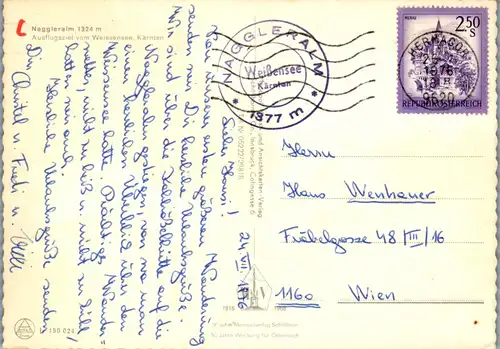 Naggleralm 1324 m
Ausflugsziel vom Weissensee, Kärnten
24. VII. 1976
Liebe Hansi!
Von unserer ersten größeren Wanderung
senden wir Dir herzliche Urlaubsgrüße.
Wir sind über die
auf die
Naggleralm gestiegen, von wo man
einen herrlichen Überblick über den
Weissensee hatte. Prächtiges Wander-
wetter, nicht zu heiß u. nicht zu kühl
hatten wir auch.
Herzliche Urlaubsgrüße senden
Dir
Christl u. Fredi u. Willi
150 024
NAGGLERALM
Weißensee
Kärnten
* 1377 m *
2.50 S
HERMAGOR
REPUBLIK ÖSTERREICH
Herrn
Hans Wenhauer
Fröbelgasse 48/III/16
1160 Wien